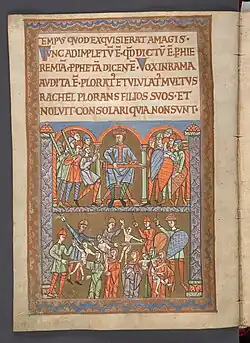 TEMPUS QUOD EXQVISIERAT AMAGIS·
TUNC ADIMPLETŪ Ē· QD̄ DICTŪ Ē· P HIE
REMIĀ· PPHETĀ DICENTĒ· VOX IN RAMA
AVDITA Ē· PLORAT᷒ ET VLVLAT᷒ MVLTVS
RACHEL PLORANS FILIOS SVOS· ET
NOLVIT CONSOLARI QVIA NON SVNT·